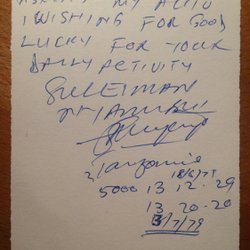 MY AUTO
I WISHING FOR GOOD
LUCKY FOR YOUR
DAILY ACTIVITY
SULEIMAN
Tanzania
18/6/79
5000 13 12-29
13 20-20
3/7/79